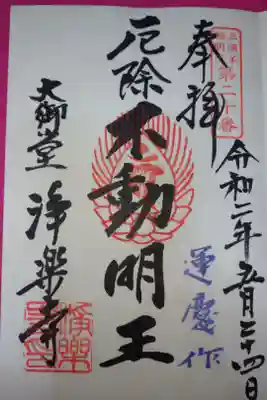 奉拝
第二十番
令和二年五月二十四日
厄除
不動明王
運慶作
大御堂
浄楽寺